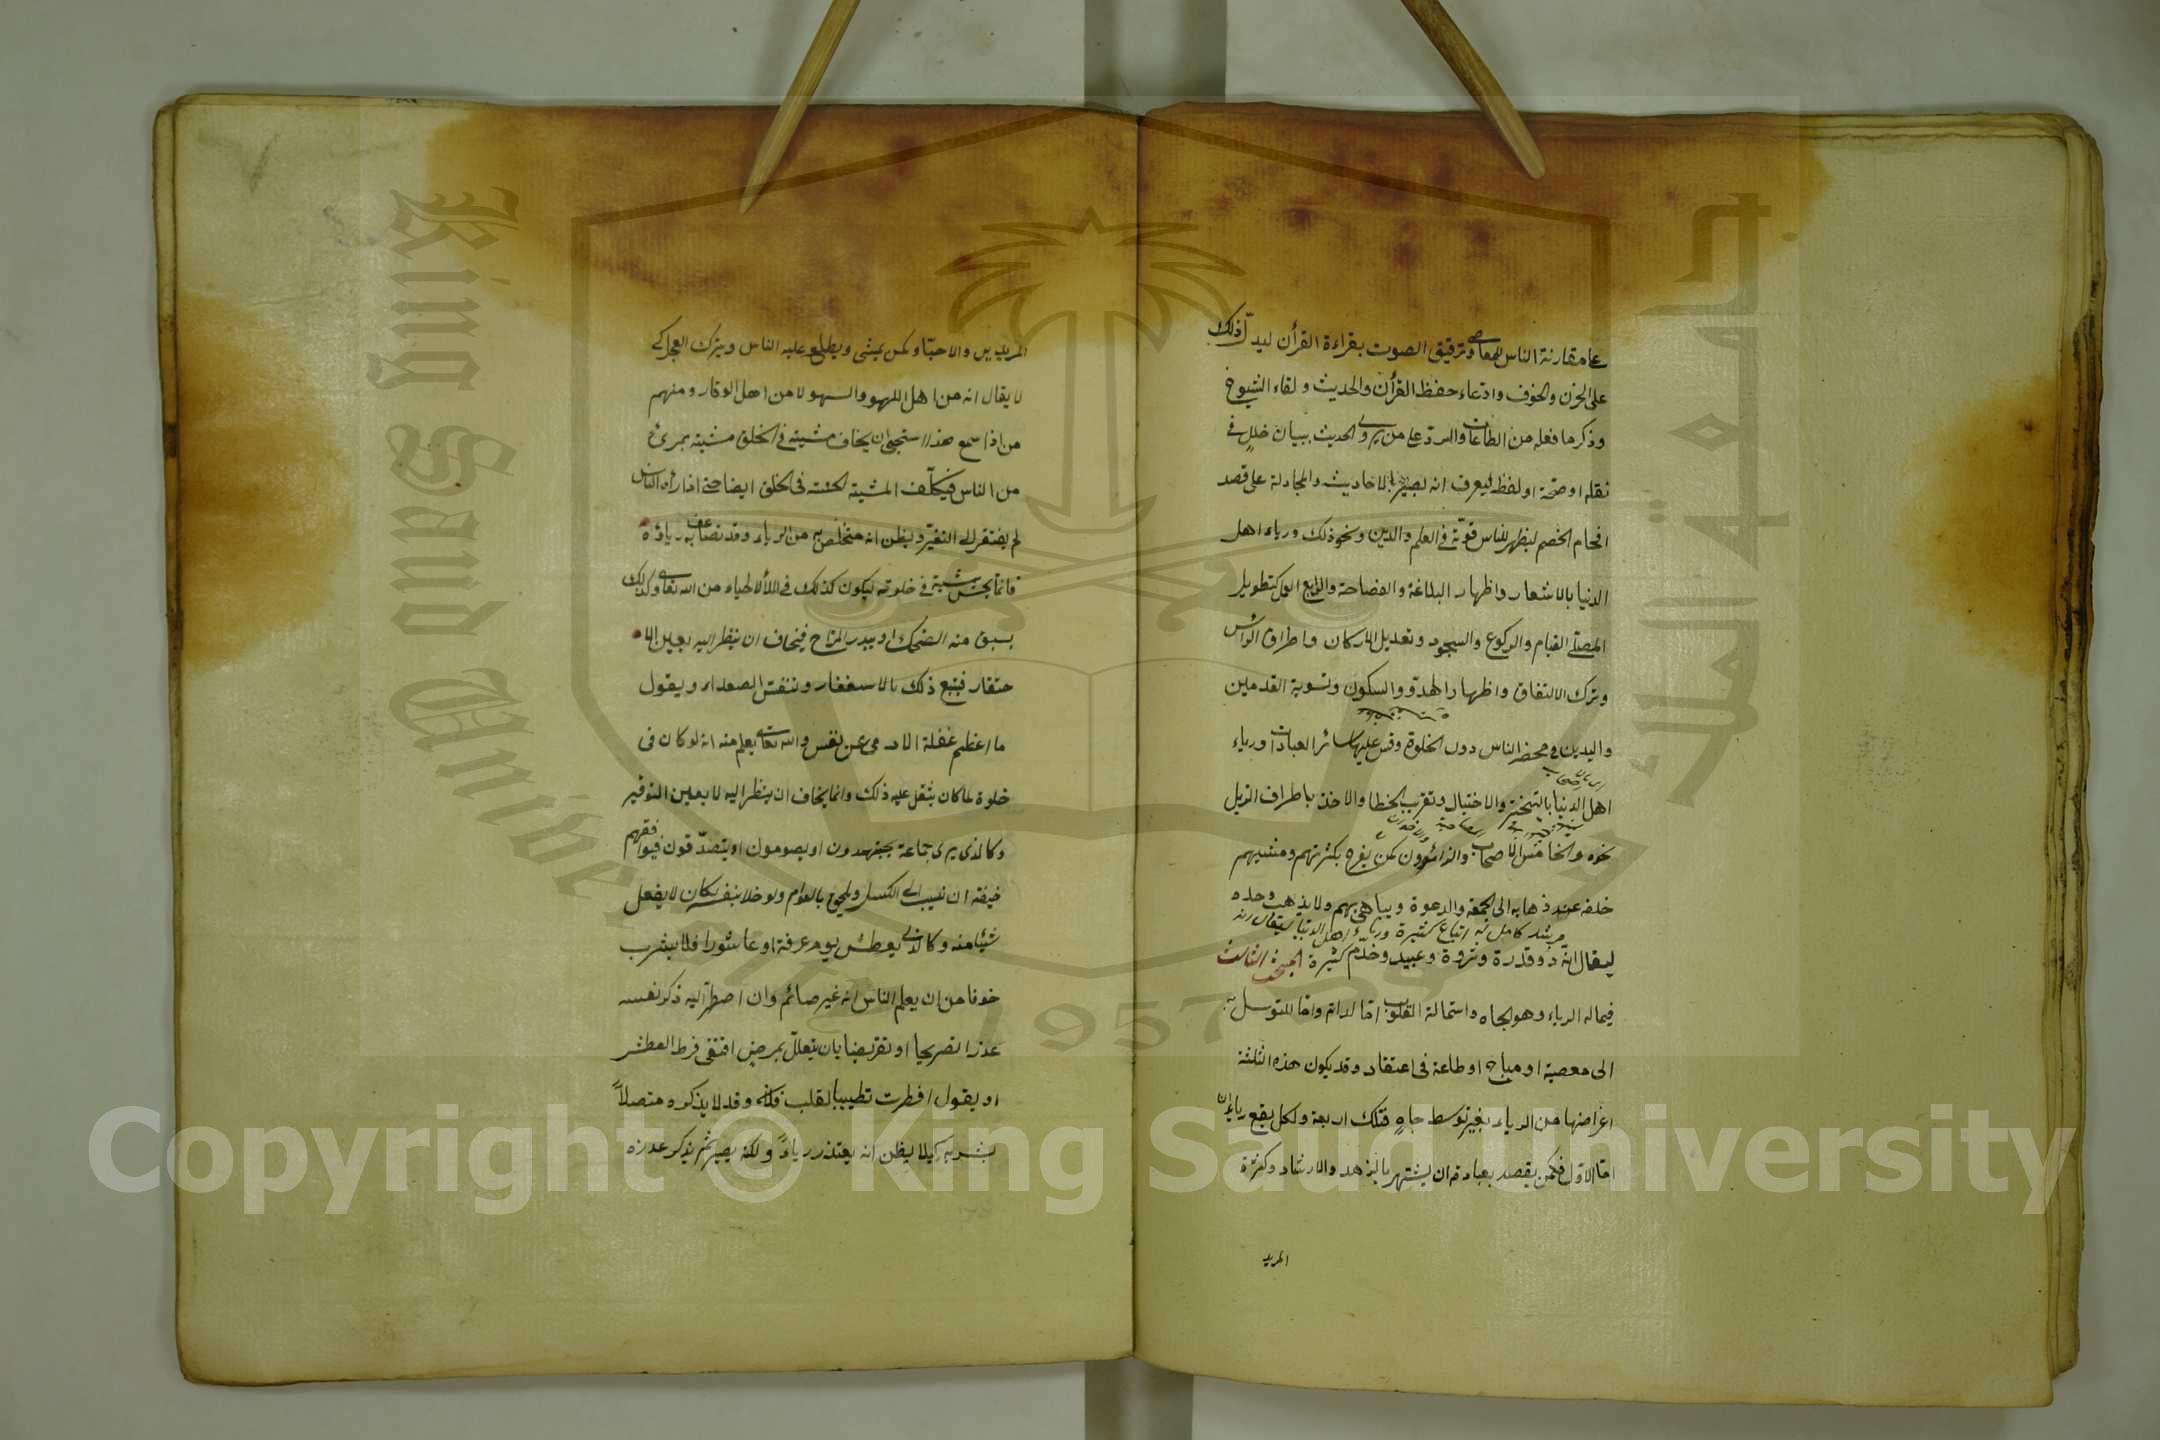 على مقارنة الناس للمعاصى وترقيق الصوت بقراءة القرأن ليدل ذلك
على الحزن والخوف وادعاء حفظ القرأن والحديث ولقاء الشيوخ
وذكر ما فعله من الطاعات والرد على من يروى الحديث ببيان خلل فى
نقله او صحته او لفظه ليعرف انه بصير بالاحاديث والمجادلة على قصد
افحام الخصم ليظهر للناس قوته فى العلم والدين ونحو ذلك ورياء اهل
الدنيا بالاشعار واظهار البلاغة والفصاحة والرابع العمل كتطويل
المصلى القيام والركوع والسجود وتعديل الاركان واطراق الرأس
وترك الالتفات واظهار الهدو والسكون وتسوية القدمين
واليدين فى محضر الناس دون الخلوة وقس عليها سائر العبادات ورياء
اهل الدنيا بالتبختر والاختيال وتقريب الخطا والاخذ باطراف الذيل
نحوه والخامس الاصحاب والزائرون كمن يفرح بكثرتهم ومشيهم
خلفه عند ذهابه الى الجمعة والدعوة ويباهى بهم ولا يذهب وحده
مرشد كامل له اتباع كثيرة ورياء اهل الدنيا ليقال انه
ليقال انه ذو قدرة وثروة وعبيد وخدم كثيرة المبحث الثالث
فيما له الرياء وهو الجاه واستمالة القلوب اما لذاته واما للتوسل به
الى معصية او مباح او طاعة فى اعتقاد وقد يكون هذه الثلثة
اغراضها من الرياء بغير توسط جاه فتلك اربعة ولكل يقع رياءان
اما الاول فكمن يقصد بعبادته ان يشتهر بالزهد والارشاد وكثرة
المريد
المريدين والاحباء وكمن يمشى ويطلع عليه الناس ويترك العجل كى
لا يقال انه من اهل اللهو والسهو لا من اهل الوقار ومنهم
من اذا سمع هذا استحى ان يخاف مشيته فى الخلق مشيته بمرئ
من الناس فيكلف المشية الحسنة فى الخلق ايضا حتى اذا رأه الناس
لم يفتقر الى التغير ويظن انه متخلص به من الرياء وقد تضاعف به رياؤه
فانما يحسن مشيته فى خلوته ليكون كذلك فى الملأ لا لحياء من الله تعالى وكذلك
يسبق منه الضحك او يبدر المزاح فيخاف ان ينظر اليه بعين الا
حتقار فيتبع ذلك بالاستغفار وتنفس الصعداء ويقول
ما اعظم غفلة الادمى عن نفس والله تعالى يعلم منه انه لو كان فى
خلوة لما كان يثقل عليه ذلك وانما يخاف ان ينظر اليه لا بعين التوقير
وكالذى يرى جماعة يجتهدون او يصومون او يتصدقون فيوافقهم
خيفة ان ينسب الى الكسل ويلحق بالعوام ولو خلا بنفسه لكان لا يفعل
شيئا منه وكالذى يعطش يوم عرفة او عاشورا فلا يشرب
خوفا من ان يعلم الناس انه غير صائم وان اضطر اليه ذكر نفسه
عذرا تصريحا او تعريضا بان يتعلل بمرض اقتضى فرط العطش
او يقول افطرت تطييبا لقلب فلان وقد لا يذكره متصلا
بشربه كيلا يظن انه يعتذر رياء ولكنه يصبر ثم يذكر عذره
Copyright © King Saud University
1957